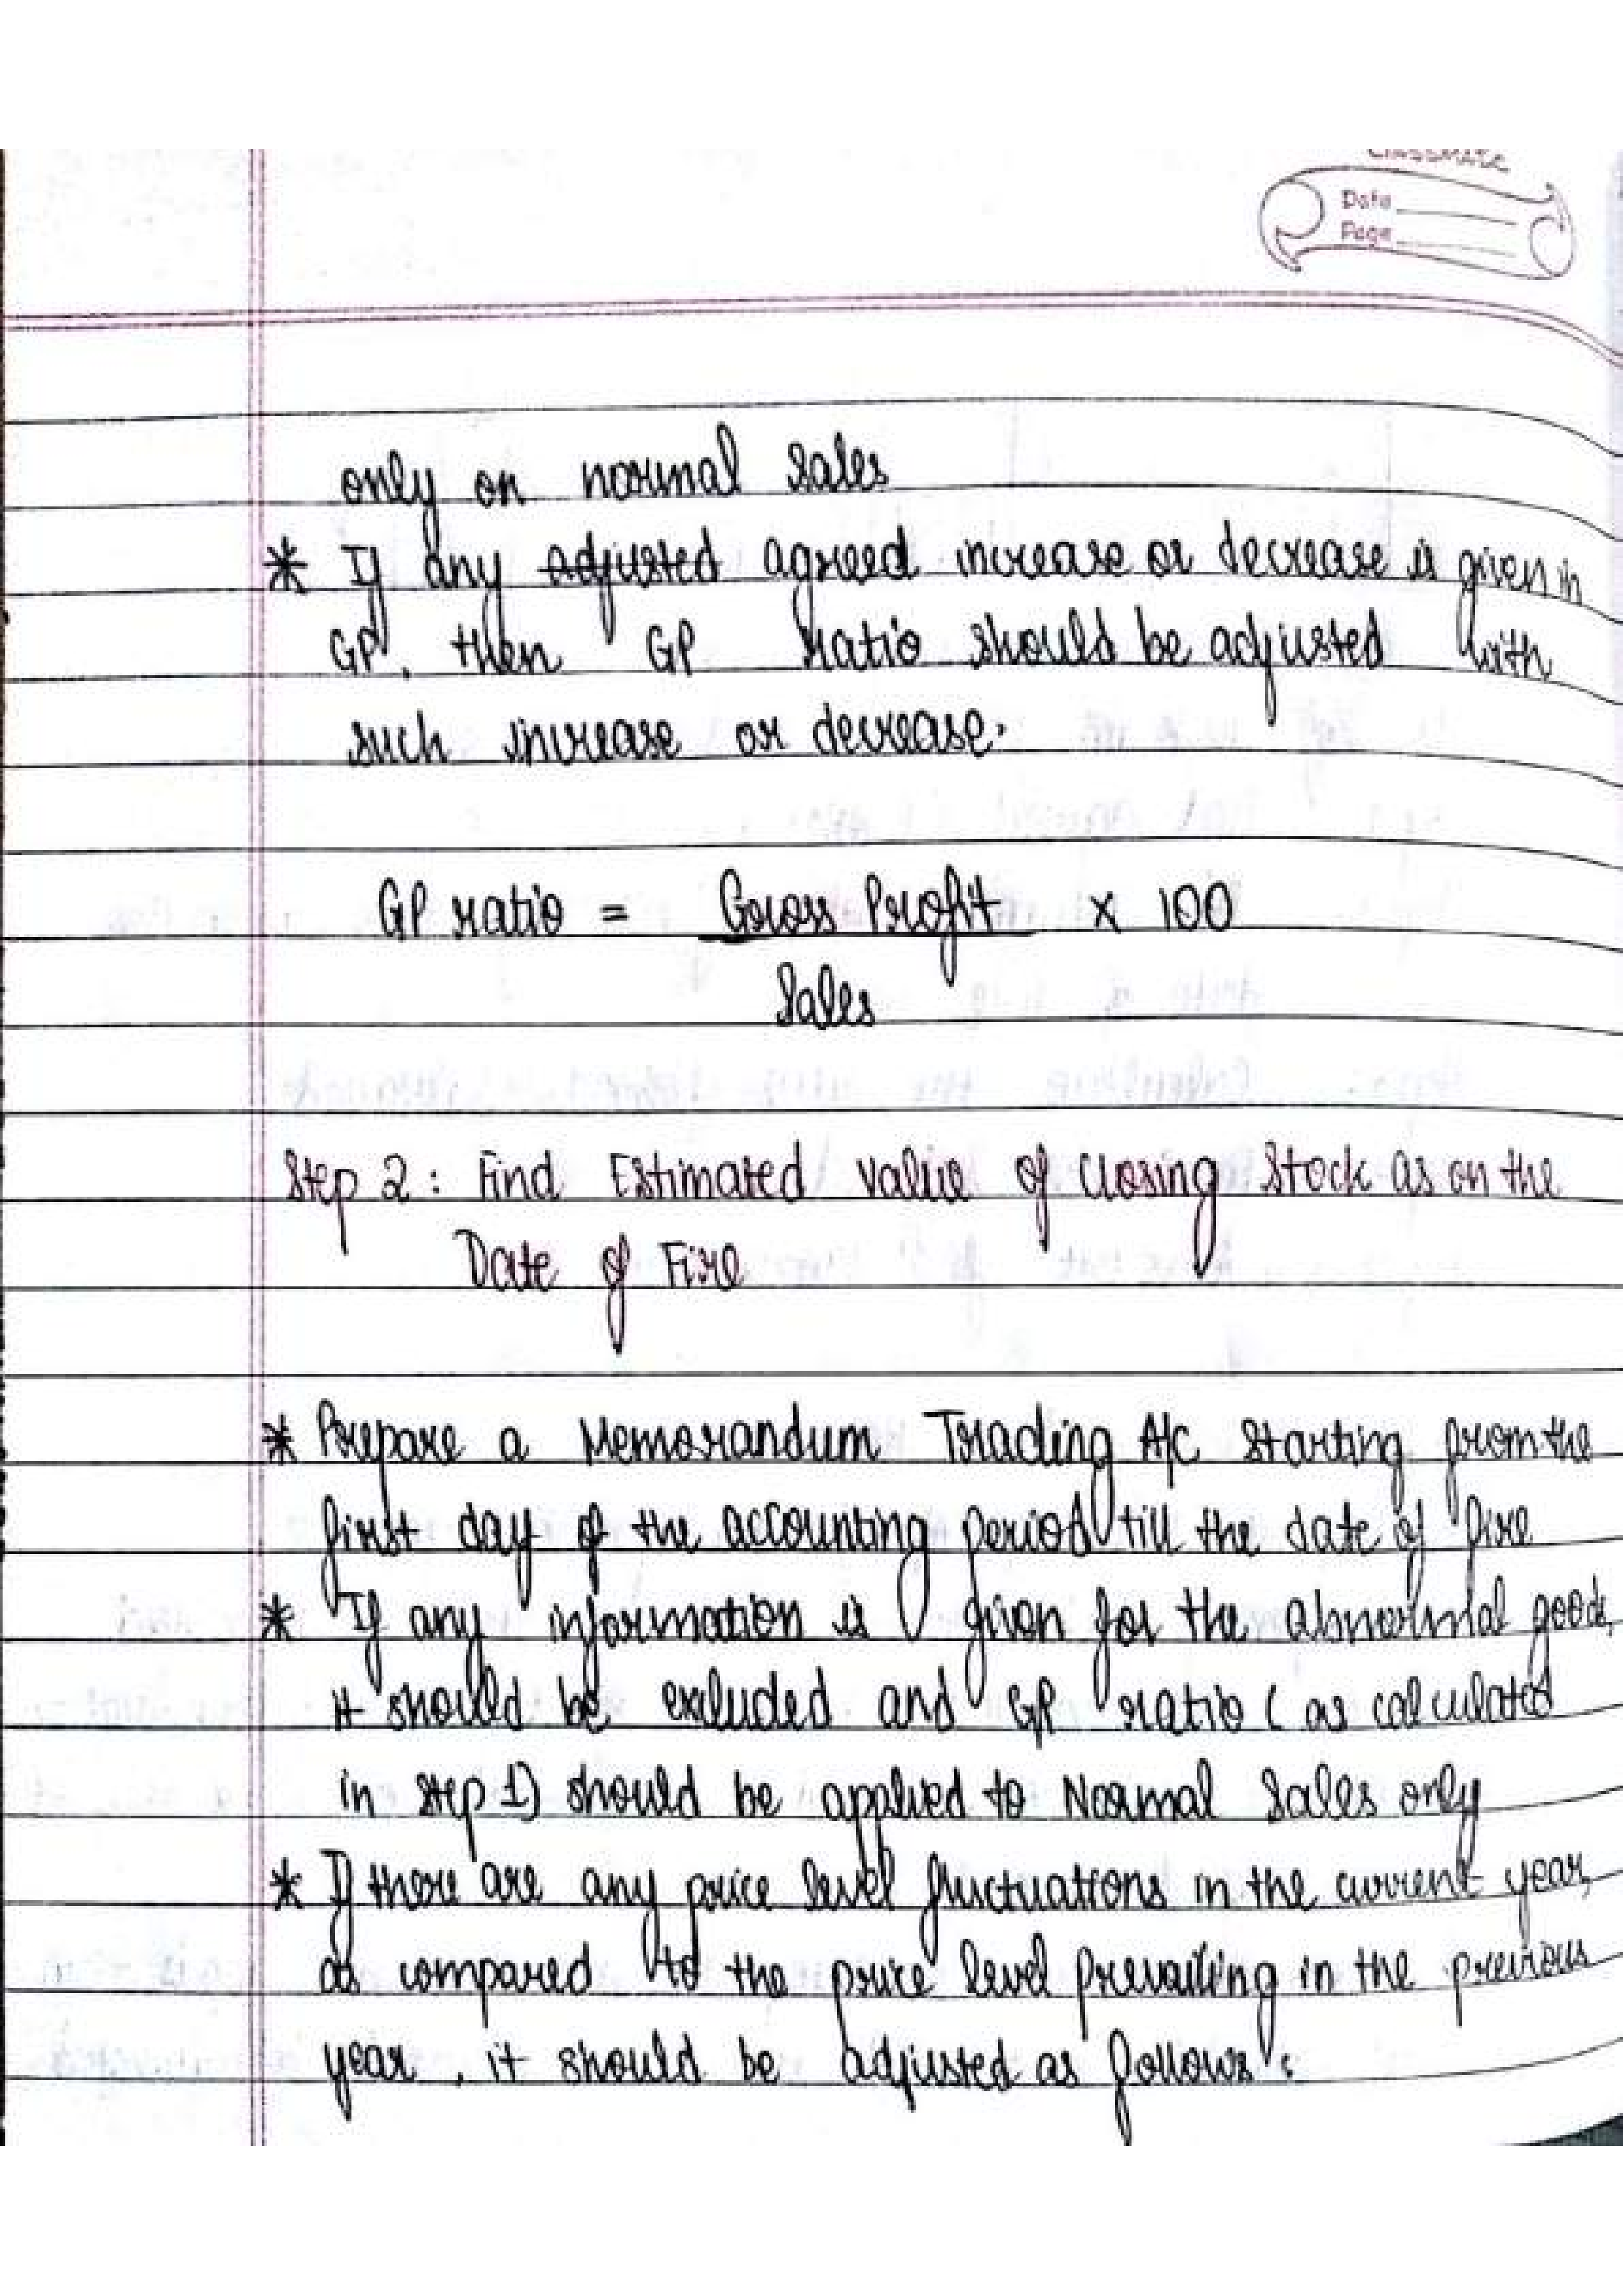 classmate
Date
Page
only on normal sales
* If any adjusted agreed increase or decrease is given in
GP, then GP ratio should be adjusted with
such increase or decrease.
GP ratio = Gross Profit x 100
Sales
Step 2: Find Estimated value of Closing Stock as on the
Date of Fire
* Prepare a Memorandum Trading A/c starting from the
first day of the accounting period till the date of fire
* If any information is given for the abnormal goods,
it should be excluded and GP ratio (as calculated
in step 1) should be applied to Normal Sales only
* If there are any price level fluctuations in the current year,
as compared to the price level prevailing in the previous
year, it should be adjusted as follows: